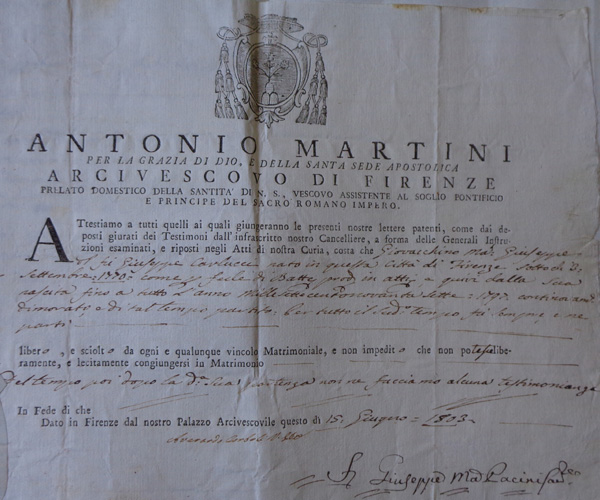 ANTONIO MARTINI
PER LA GRAZIA DI DIO, E DELLA SANTA SEDE APOSTOLICA
ARCIVESCOVO DI FIRENZE
PRELATO DOMESTICO DELLA SANTITA' DI N. S., VESCOVO ASSISTENTE AL SOGLIO PONTIFICIO
E PRINCIPE DEL SACRO ROMANO IMPERO.
ATtestiamo a tutti quelli ai quali giungeranno le presenti nostre lettere patenti, come dai de-
posti giurati dei Testimoni dall'infrascritto nostro Cancelliere, a forma delle Generali Instru-
zioni esaminati, e riposti negli Atti di nostra Curia, costa che Giovacchino Ma: Giuseppe
di Giuseppe nato in questa Città di Firenze Sotto di 3,
Settembre come fede di Batt. prod. in atti, e quivi dalla Sua
nascita fino a tutto l'anno Millesettecentonovanta Sette = 1797. continuam:
dimorato e di tal tempo partito, Per tutto il sud: tempo, fù sempre e ne
partì
libero, e sciolto da ogni e qualunque vincolo Matrimoniale, e non impedito che non potesse libe-
ramente, e lecitamente congiungersi in Matrimonio
Del tempo poi dopo la d: Sua partenza non ne facciamo alcuna testimonianza
In Fede di che
Dato in Firenze dal nostro Palazzo Arcivescovile questo dì 15 Giugno = 1803 =
Giuseppe Ma: Pacini